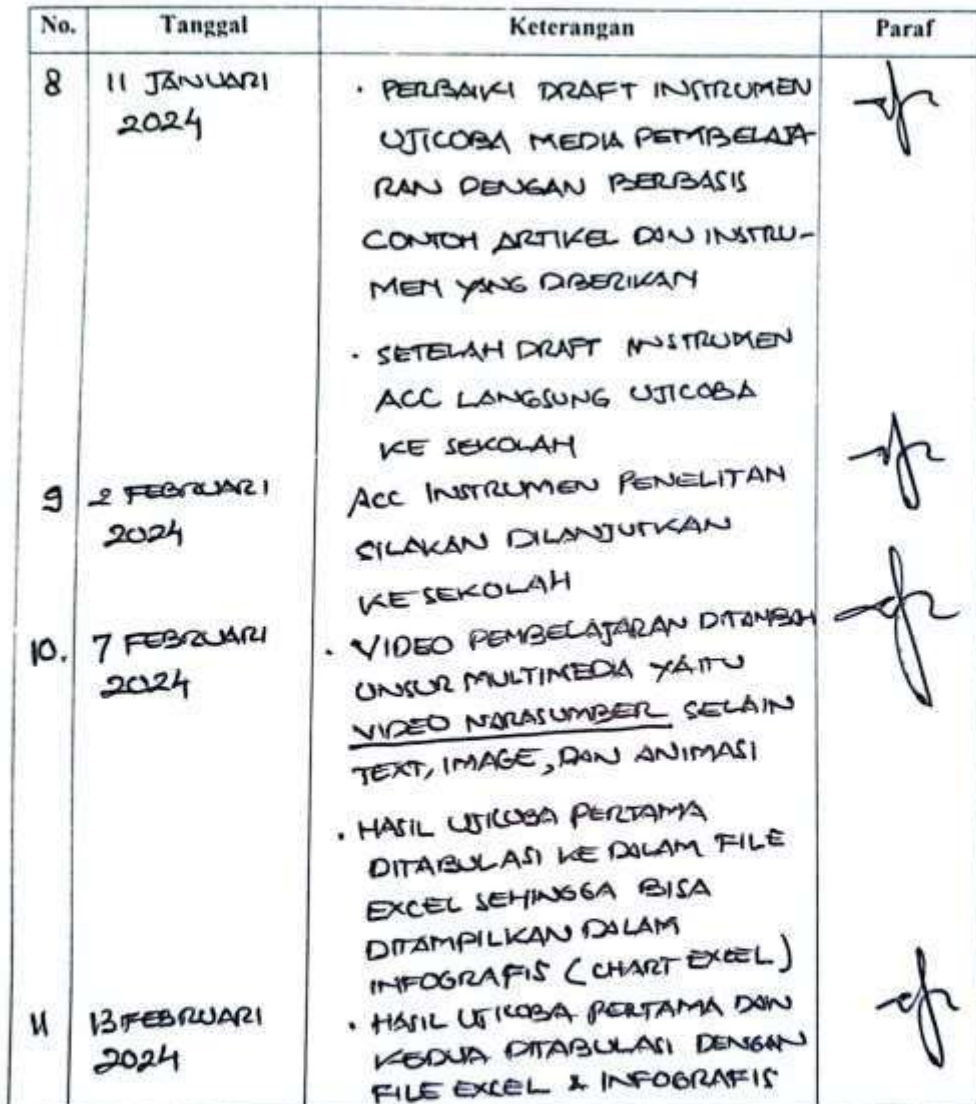 No. Tanggal Keterangan Paraf
8 11 JANUARI · PERBAIKI DRAFT INSTRUMEN
2024 UJICOBA MEDIA PEMBELAJA-
RAN DENGAN BERBASIS
CONTOH ARTIKEL DAN INSTRU-
MEN YANG DIBERIKAN
· SETELAH DRAFT INSTRUMEN
ACC LANGSUNG UJICOBA
KE SEKOLAH
9 2 FEBRUARI ACC INSTRUMEN PENELITAN
2024 SILAKAN DILANJUTKAN
KE SEKOLAH
10. 7 FEBRUARI · VIDEO PEMBELAJARAN DITAMBAH
2024 UNSUR MULTIMEDIA YAITU
VIDEO NARASUMBER SELAIN
TEXT, IMAGE, DAN ANIMASI
· HASIL UJICOBA PERTAMA
DITABULASI KE DALAM FILE
EXCEL SEHINGGA BISA
DITAMPILKAN DALAM
INFOGRAFIS (CHART EXCEL)
11 13 FEBRUARI · HASIL UJICOBA PERTAMA DAN
2024 KEDUA DITABULASI DENGAN
FILE EXCEL & INFOGRAFIS